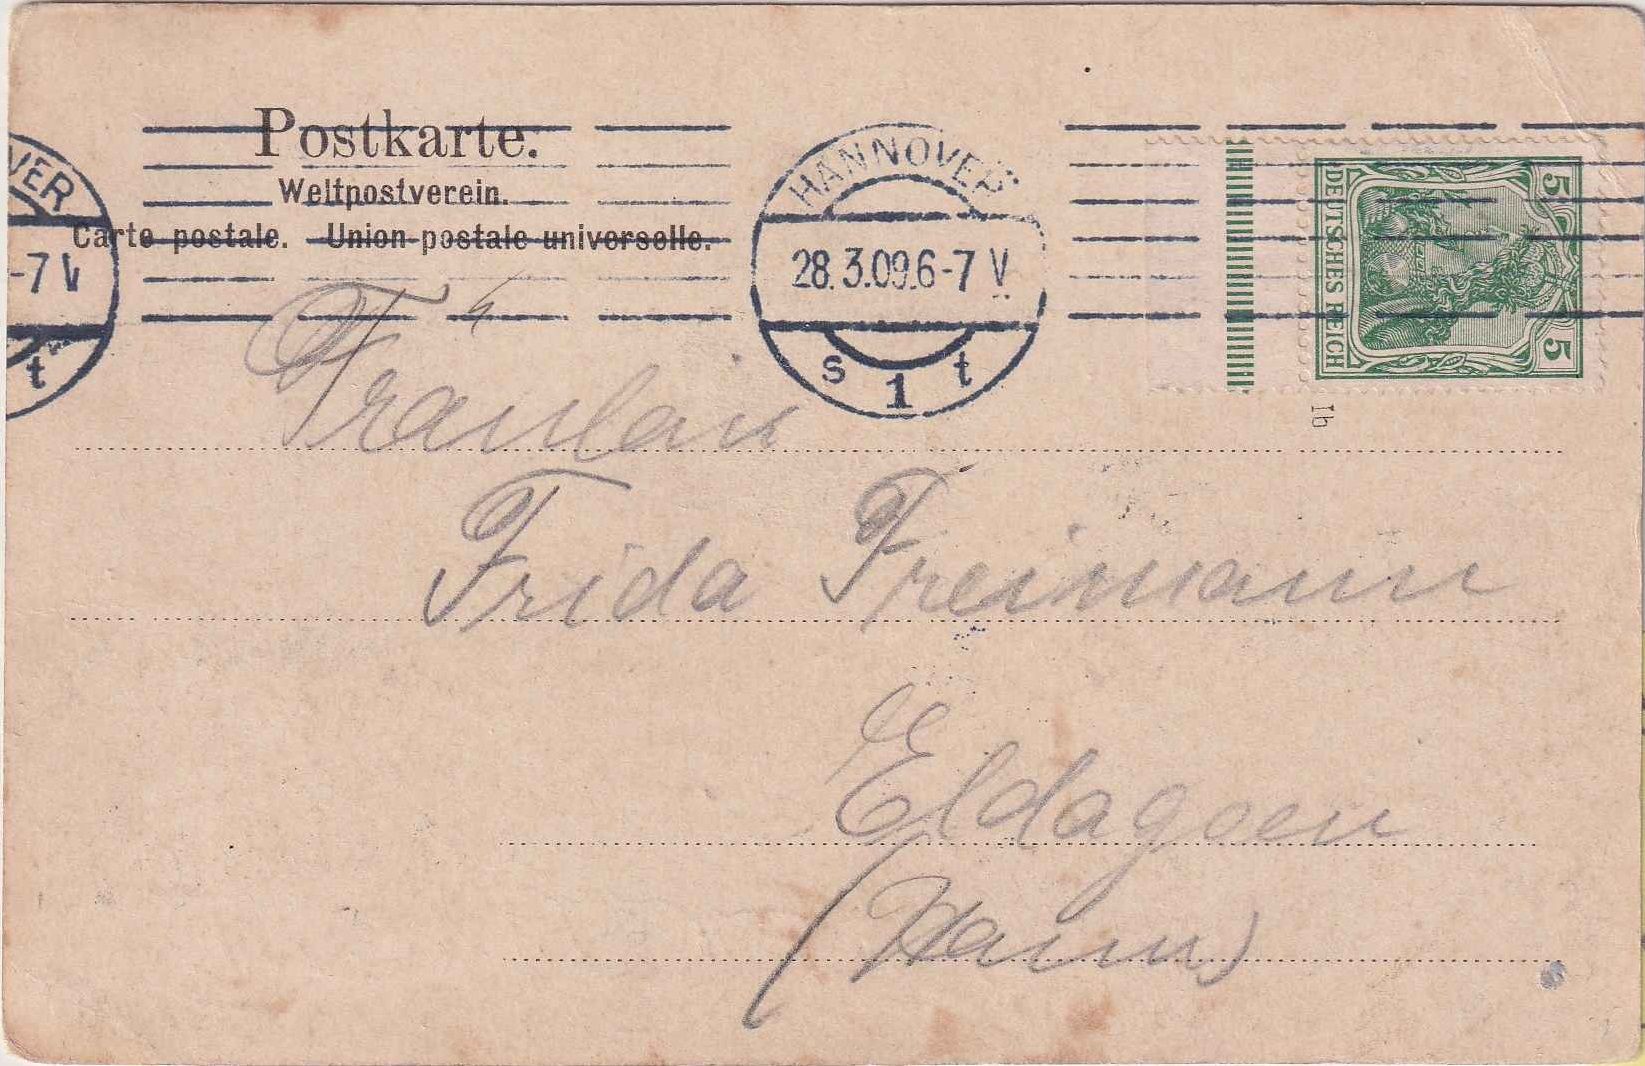 Postkarte.
Weltpostverein.
Carte postale. Union postale universelle.
VER
-7 V
t
HANNOVER
28.3.09.6-7 V
s 1 t
5 5
DEUTSCHES REICH
Ib
Fräulein
Frida Freimann
Eldagsen
(Hann)